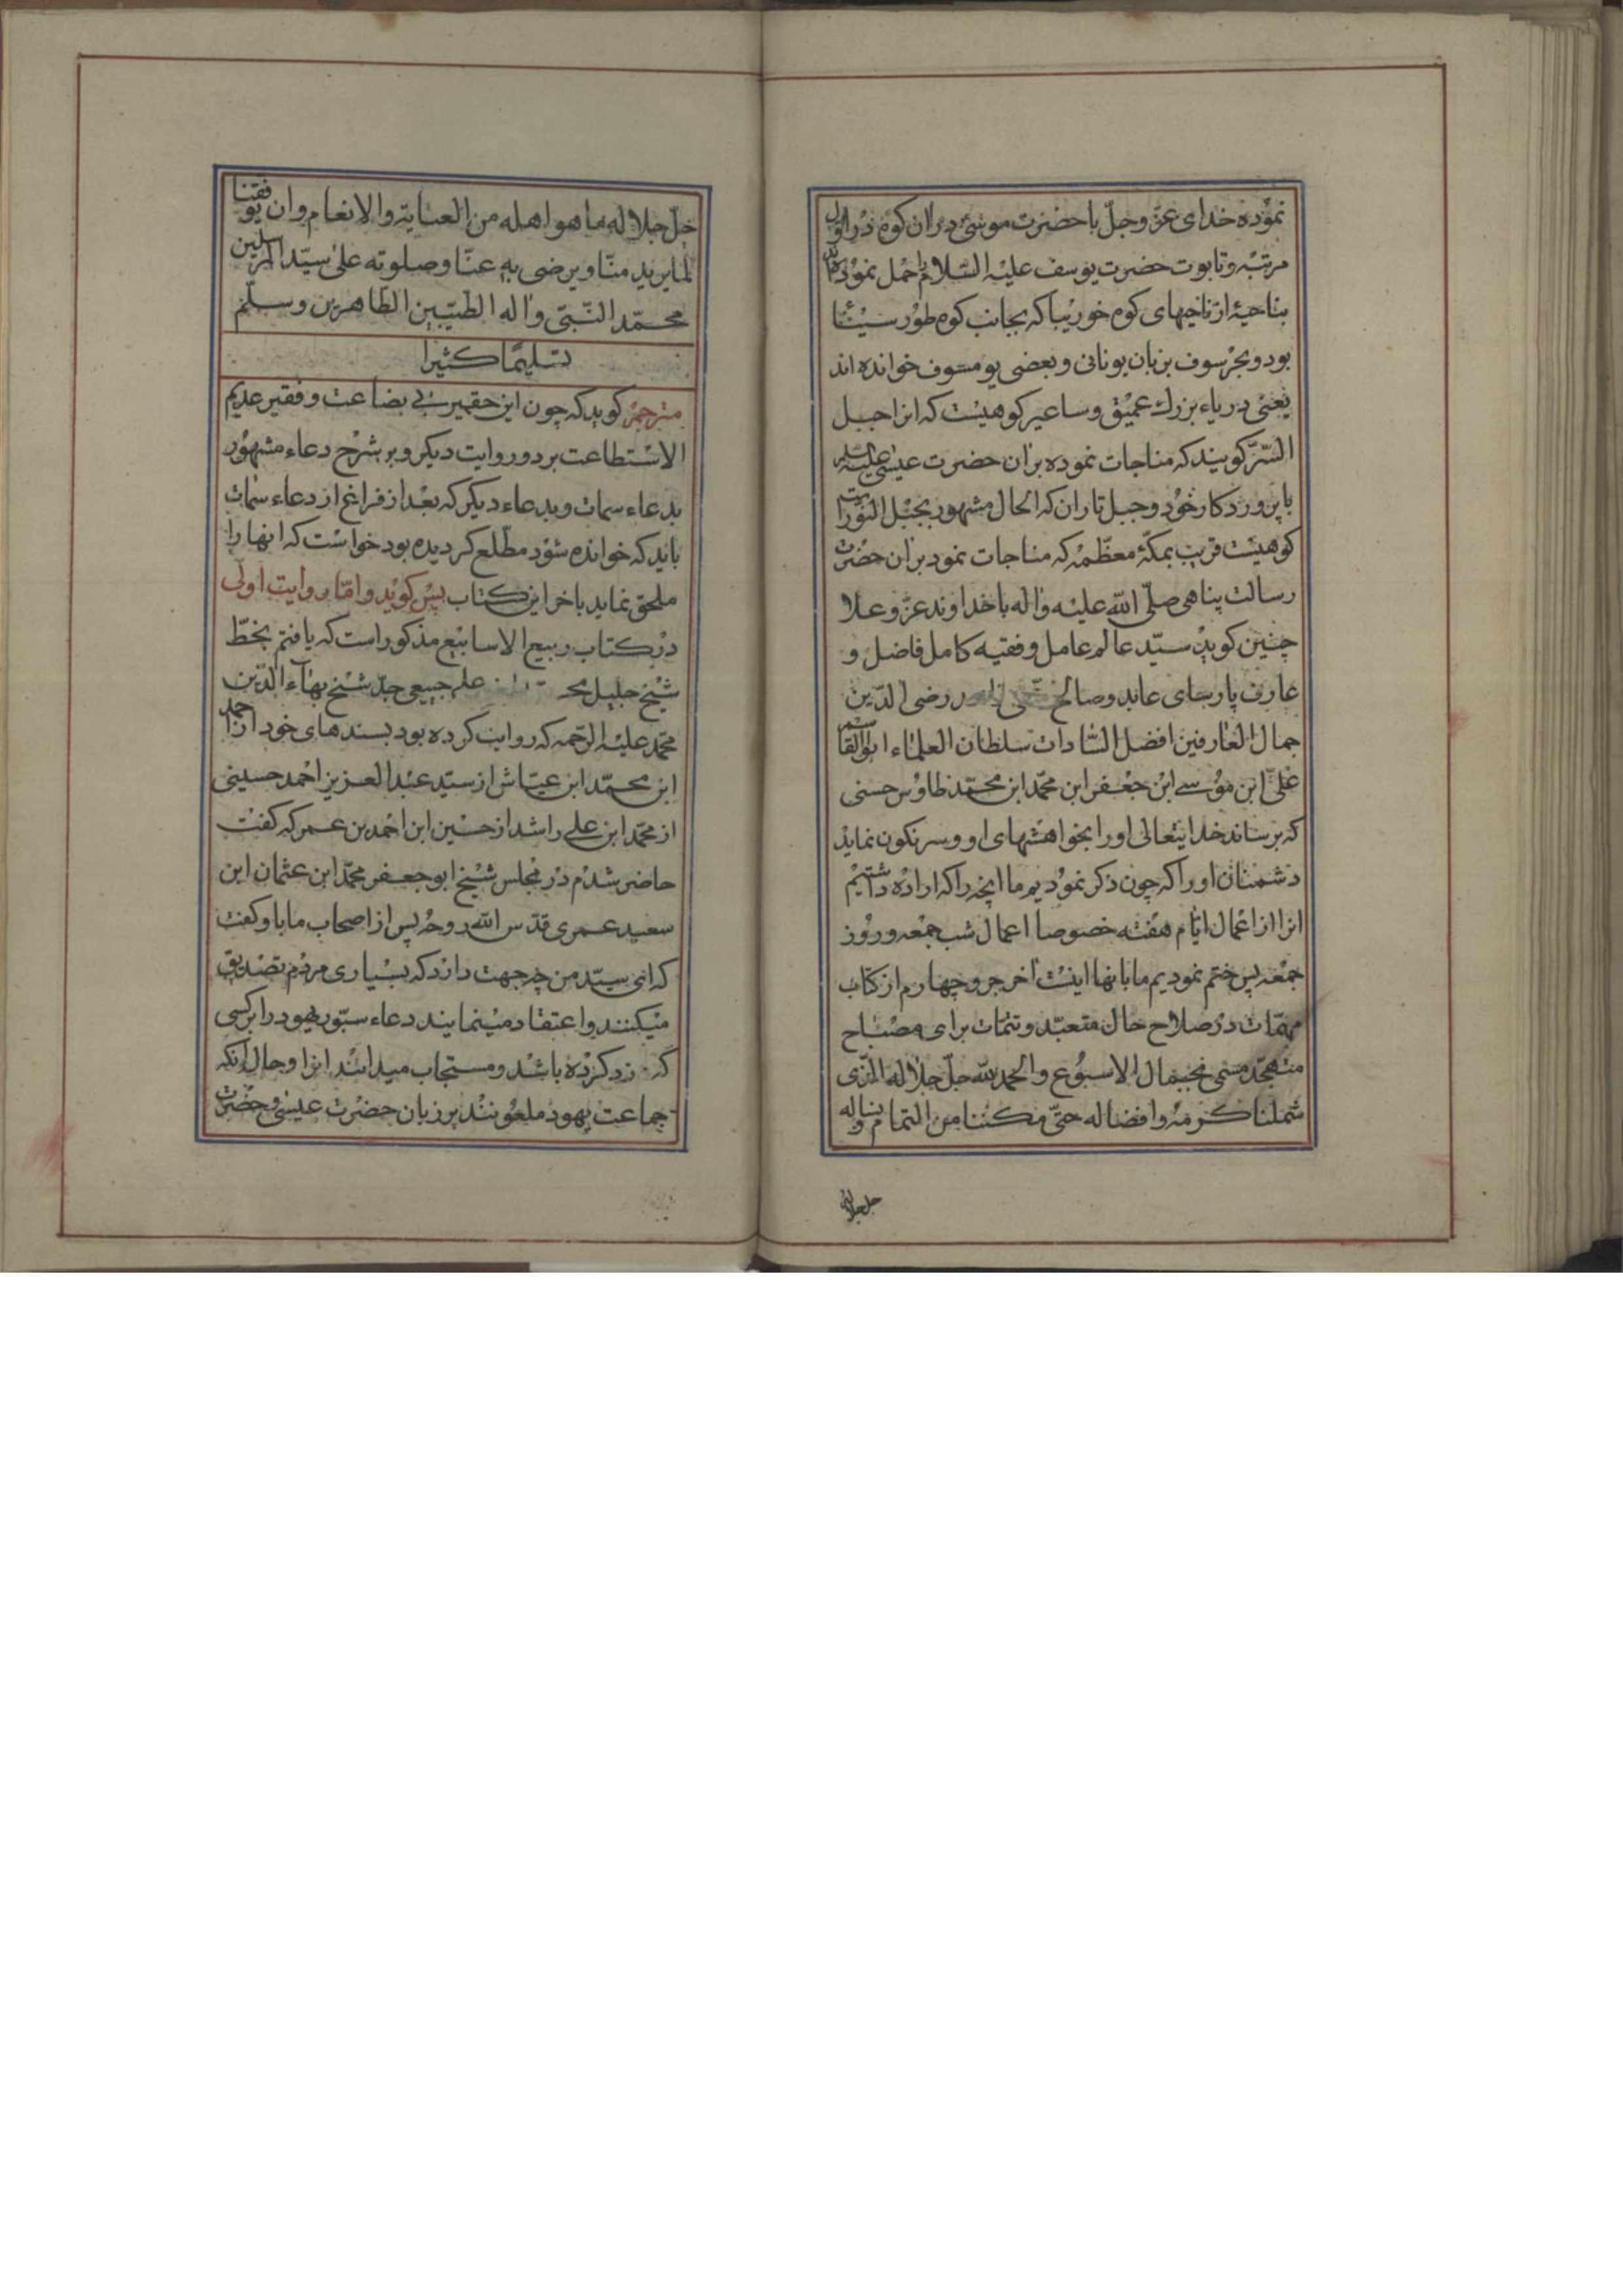 نموده خدای عزّ و جلّ با حضرت موسی در ان کوه در اوّل
مرتبه و تابوت حضرت یوسف علیه السّلام را حمل نموده
بناحیهٔ از ناحیهای کوه خوریبا که بجانب کوه طور سیناء
بود و بحر سوف بزبان یونانی و بعضی یو مسوف خوانده اند
یعنی دریاء بزرك عمیق و ساعیر کوهیست که انرا جبل
السّرّ کویند که مناجات نموده بران حضرت عیسی علیه السلم
با پروردکار خود و جبل تاران که الحال مشهور بجبل النّور
کوهیست قریب بمکّهٔ معظّمه که مناجات نمود بران حضرت
رسالت پناهی صلّی اللّه علیه و اله با خداوند عزّ و علا
چنین کوید سیّد عالم عامل و فقیه کامل فاضل و
عارف پارسای عابد و صالح رضی الدّین
جمال العارفین افضل السّادات سلطان العلماء ابو القاسم
علیّ ابن موسی ابن جعفر ابن محمّد ابن محمّد طاوس حسنی
که برساند خدایتعالی اورا بخواهشهای او و سرنکون نماید
دشمنان اورا که چون ذکر نمودیم ما انچه را که اراده داشتیم
انرا از اعمال ایّام هفته خصوصا اعمال شب جمعه و روز
جمعه پس ختم نمودیم ما بانها اینست اخر جزو چهارم از کتاب
مهمّات در صلاح حال متعبّد و تتمّات برای مصباح
متهجّد مسمّی بجمال الاسبوع و الحمد للّه جلّ جلاله الّذی
شملنا کرمه و افضاله حتّی مکّننا من التمام بنا و له
جل جلاله
جلّ جلاله ما هو اهله من العنایة و الانعام و ان یوفقنا
لما یرید منّا و یرضی به عنّا و صلوته علی سیّد المرسلین
محمّد النّبیّ و اله الطّیّبین الطّاهرین و سلّم
تسلیمًا کثیرا
مترجم کوید که چون این حقیر بی بضاعت و فقیر عدیم
الاستطاعت بر دو روایت دیکر و بر شرح دعاء مشهور
بدعاء سمات و بدعاء دیکر که بعد از فراغ از دعاء سمات
باید که خوانده شود مطّلع کردیده بود خواست که انها را
ملحق نماید باخر این کتاب پس کوید و امّا روایت اولی
در کتاب ربیع الاسابیع مذکور است که یافتم بخطّ
شیخ جلیل علی جبعی جدّ شیخ بهاء الدّین
محمّد علیه الرّحمه که روایت کرده بود بسندهای خود از احمد
ابن محمّد ابن عیّاش از سیّد عبد العزیز احمد حسینی
از محمّد ابن علی راشد از حسین ابن احمد بن عمر که کفت
حاضر شدم در مجلس شیخ ابو جعفر محمّد ابن عثمان ابن
سعید عمری قدّس اللّه روحه پس از اصحاب ما باو کفت
که ای سیّد من چه جهت دارد که بسیاری مردم تصدیق
میکنند و اعتقاد مینمایند دعاء سبّور یهود را بر کسی
که زد کرده باشد و مستجاب میدانند انرا و حال آنکه
جماعت یهود ملعونند بر زبان حضرت عیسی و حضرت